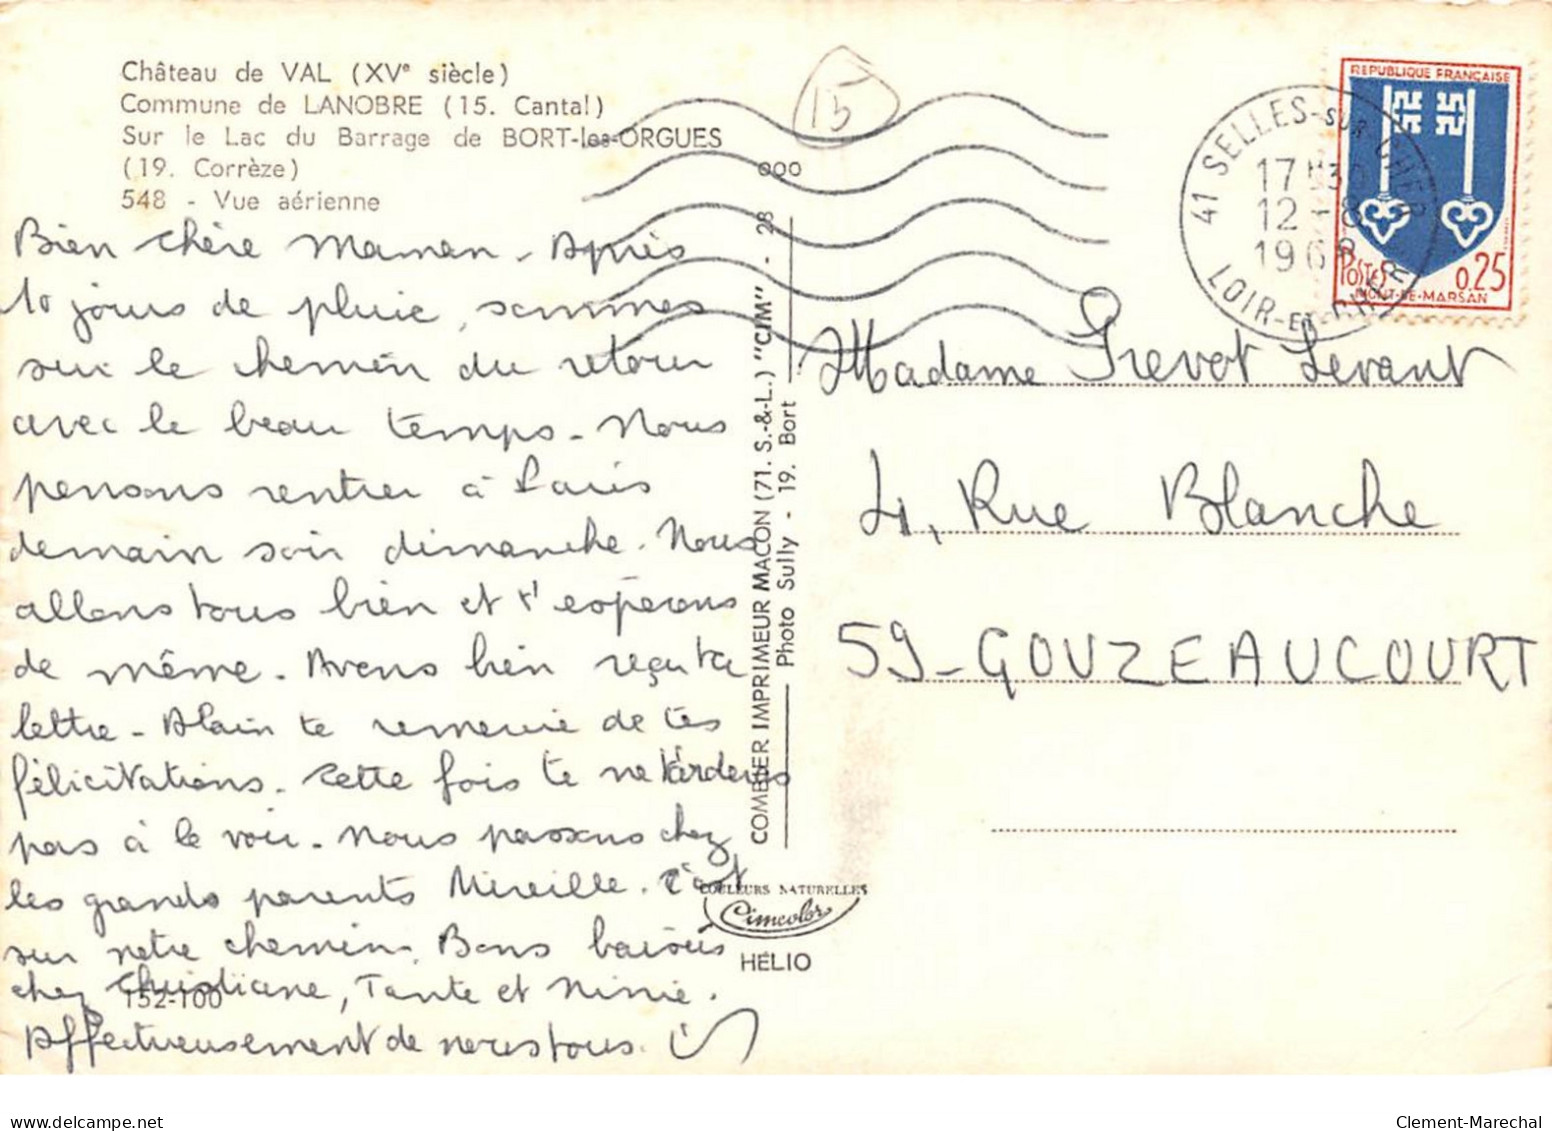 Château de VAL (XVe siècle)
Commune de LANOBRE (15. Cantal)
Sur le Lac du Barrage de BORT-les-ORGUES
(19. Corrèze)
548 - Vue aérienne
15
41 SELLES-SUR-CHER
17H30
12-8
1968
LOIR-ET-CHER
REPUBLIQUE FRANÇAISE
POSTES 0,25
MONT-DE-MARSAN
Bien chère Maman - Après
10 jours de pluie, sommes
sur le chemin du retour
avec le beau temps - Nous
pensons rentrer à Paris
demain soir dimanche. Nous
allons tous bien et t'espérons
de même - Avons bien reçu ta
lettre - Alain te remercie de tes
félicitations. Cette fois te ne tarderas
pas à le voir. Nous passons chez
les grands parents Mireille. C'est
sur notre chemin. Bons baisers
chez Christiane, Tante et Ninie.
Affectueusement de nous tous.
152-100
COMBIER IMPRIMEUR MACON (71. S.-&-L.) "CIM" - 28 ooo
Photo Sully - 19. Bort
COULEURS NATURELLES
Cimcolor
HÉLIO
Madame Prevot Levant
4, Rue Blanche
59-GOUZEAUCOURT
Clement-Marechal